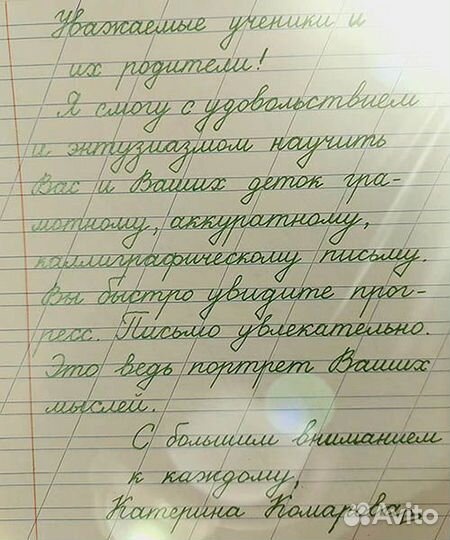 Уважаемые ученики и
их родители!
Я смогу с удовольствием
и энтузиазмом научить
Вас и Ваших деток гра-
мотному, аккуратному,
каллиграфическому письму.
Вы быстро увидите прог-
ресс. Письмо увлекательно.
Это ведь портрет Ваших
мыслей.
С большим вниманием
к каждому,
Катерина Комарова
Avito